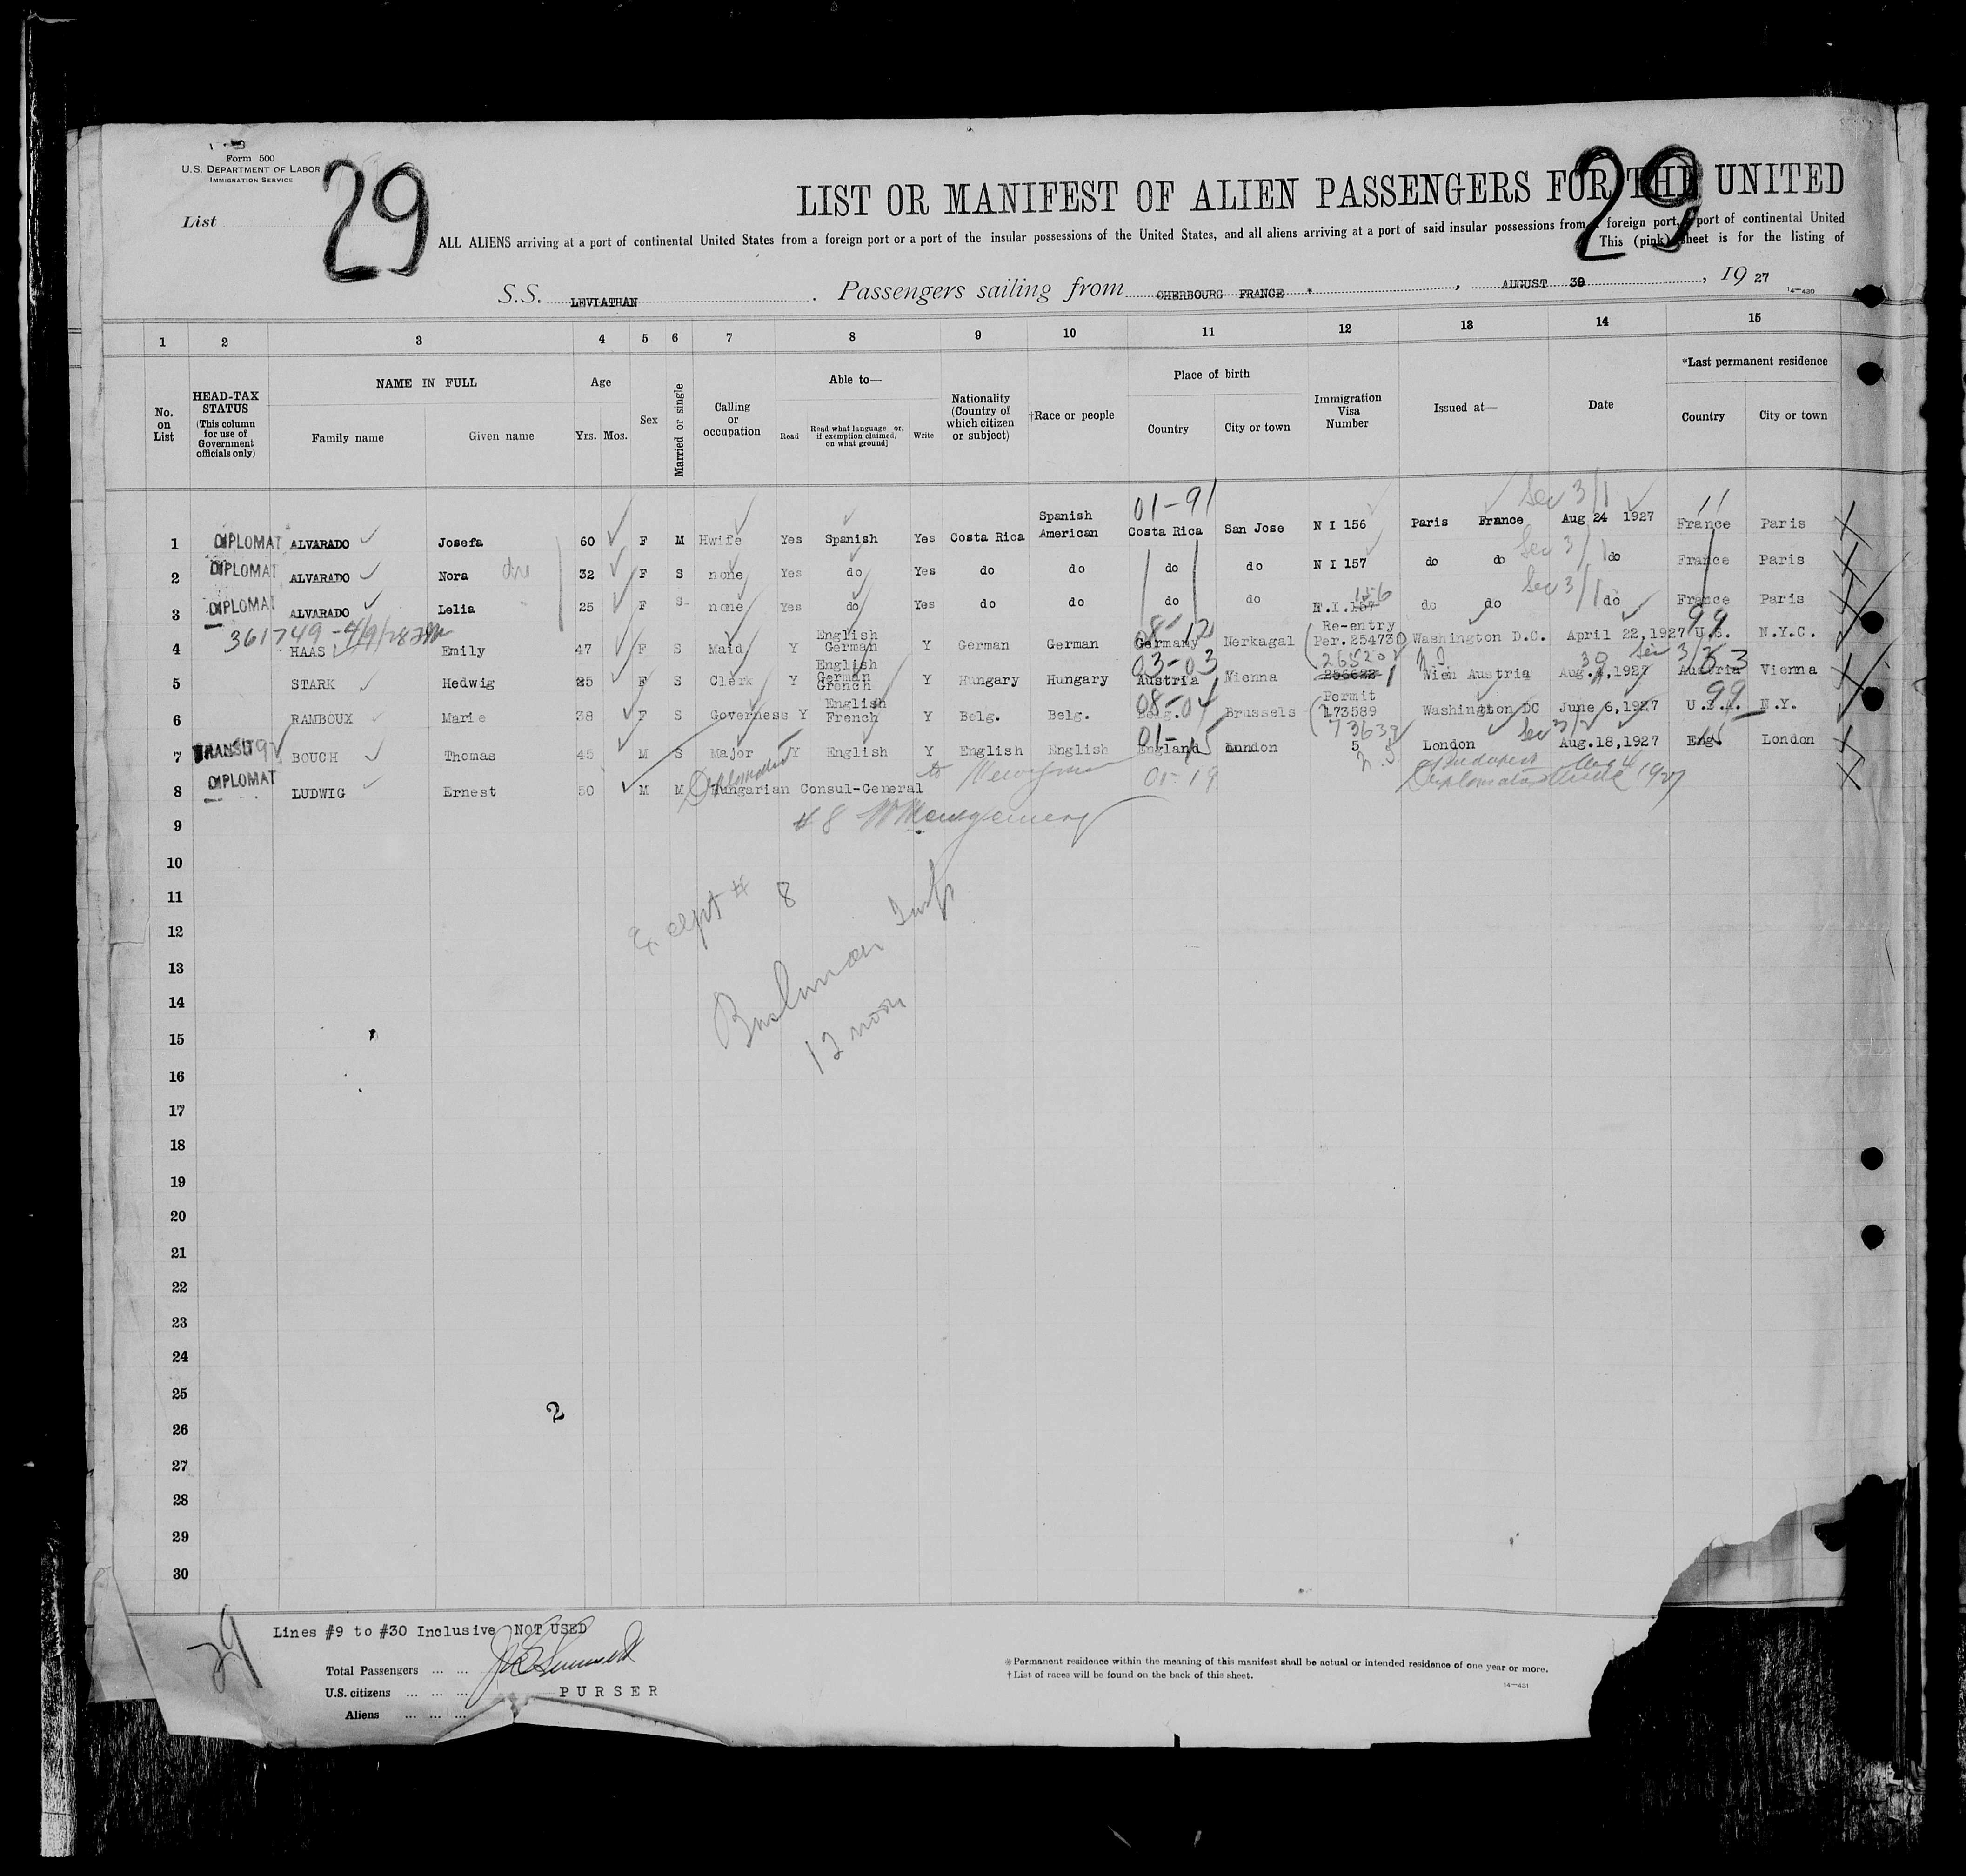 Form 500
U.S. DEPARTMENT OF LABOR
IMMIGRATION SERVICE
List
29
29
LIST OR MANIFEST OF ALIEN PASSENGERS FOR THE UNITED
ALL ALIENS arriving at a port of continental United States from a foreign port or a port of the insular possessions of the United States, and all aliens arriving at a port of said insular possessions from a foreign port, a port of continental United
This (pink) sheet is for the listing of
S.S. LEVIATHAN . Passengers sailing from CHERBOURG FRANCE , AUGUST 30 , 19 27
14—430
1 2 3 4 5 6 7 8 9 10 11 12 13 14 15
No. on List
HEAD-TAX STATUS (This column for use of Government officials only)
NAME IN FULL
Family name Given name
Age
Yrs. Mos.
Sex
Married or single
Calling or occupation
Able to—
Read Read what language or, if exemption claimed, on what ground] Write
Nationality (Country of which citizen or subject)
†Race or people
Place of birth
Country City or town
Immigration Visa Number
Issued at—
Date
*Last permanent residence
Country City or town
01-91 Sec 3/1 11
1 DIPLOMAT ALVARADO Josefa 60 F M Hwife Yes Spanish Yes Costa Rica Spanish American Costa Rica San Jose N I 156 Paris France Aug 24 1927 France Paris
Sec 3/1
2 DIPLOMAT ALVARADO Nora 32 F S none Yes do Yes do do do do N I 157 do do do France Paris
Sec 3/1
3 DIPLOMAT ALVARADO Lelia 25 F S none Yes do Yes do do do do N.I.157 156 do do do France Paris
361749 - 4/9/28
08-12 99
4 HAAS Emily 47 F S Maid Y English German Y German German Germany Nerkagal Re-entry Per.254730 Washington D.C. April 22,1927 U.S. N.Y.C.
03-03 265202 30 Sec 3/2 53
5 STARK Hedwig 25 F S Clerk Y English German French Y Hungary Hungary Austria Vienna 256622 Wien Austria Aug. ,1927 Austria Vienna
08-04 99
6 RAMBOUX Marie 38 F S Governess Y English French Y Belg. Belg. Belg. Brussels Permit 173589 Washington DC June 6,1927 U.S.A. N.Y.
01-15 73639 Sec 3/2 15
7 TRANSIT 92 BOUCH Thomas 45 M S Major Y English Y English English England London 5 London Aug.18,1927 Eng. London
8 DIPLOMAT LUDWIG Ernest 50 M M Hungarian Consul-General 01-19 Budapest Aug 4 1927
Diplomatic
9 #8 Montgomery
10
11 Except # 8
12
13
14 Bushman Insp
15 12 noon
16
17
18
19
20
21
22
23
24
25
2
26
27
28
29
30
29
Lines #9 to #30 Inclusive NOT USED
Total Passengers ... ...
U.S. citizens ... ... ... PURSER
Aliens ... ... ...
* Permanent residence within the meaning of this manifest shall be actual or intended residence of one year or more.
† List of races will be found on the back of this sheet.
14—431